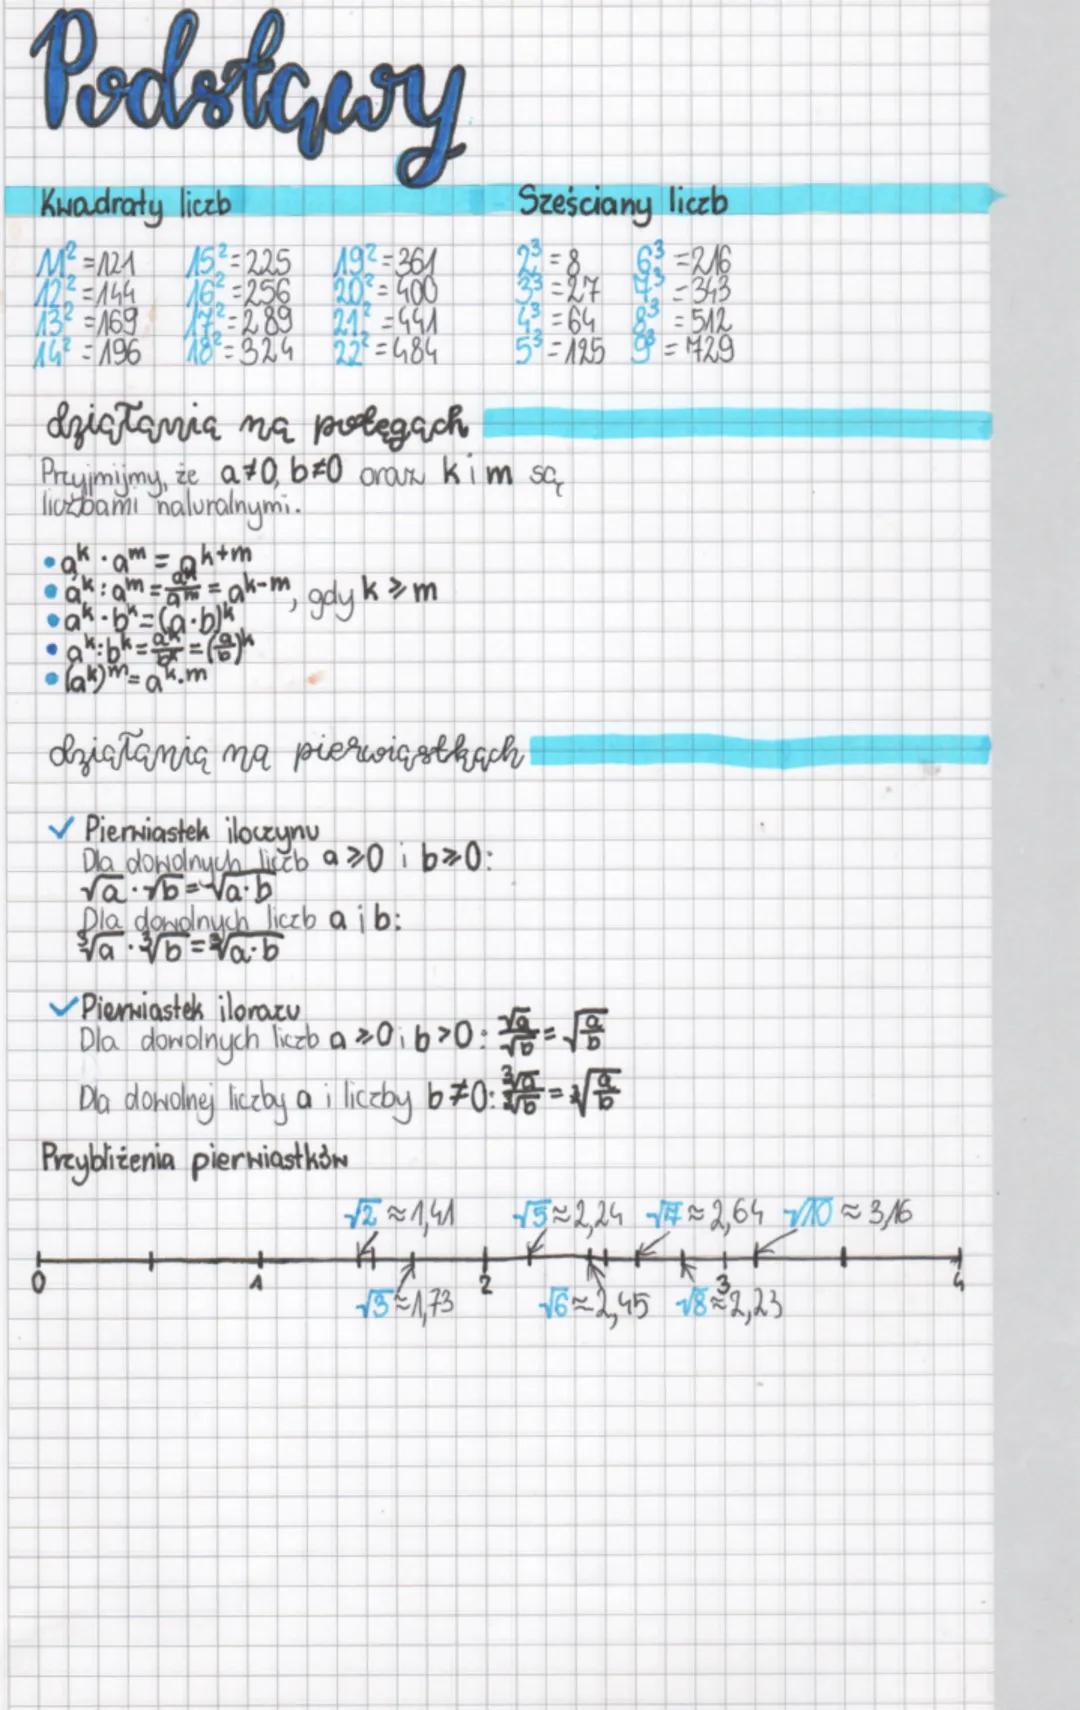 Podstawy
Kwadraty liczb
Sześciany liczb
11² = 121 15² = 225 19² = 361 2³ = 8 6³ = 216
12² = 144 16² = 256 20² = 400 3³ = 27 7³ = 343
13² = 169 17² = 289 21² = 441 4³ = 64 8³ = 512
14² = 196 18² = 324 22² = 484 5³ = 125 9³ = 729
działania na potęgach
Przyjmijmy, że a≠0, b≠0 oraz k i m są
liczbami naturalnymi.
• aᵏ · aᵐ = aᵏ⁺ᵐ
• aᵏ : aᵐ = aᵏ/aᵐ = aᵏ⁻ᵐ, gdy k ⩾ m
• aᵏ · bᵏ = (a·b)ᵏ
• aᵏ : bᵏ = aᵏ/bᵏ = (a/b)ᵏ
• (aᵏ)ᵐ = aᵏ·ᵐ
działania na pierwiastkach
✓ Pierwiastek iloczynu
Dla dowolnych liczb a ⩾ 0 i b ⩾ 0:
√a · √b = √a·b
Dla dowolnych liczb a i b:
∛a · ∛b = ∛a·b
✓ Pierwiastek ilorazu
Dla dowolnych liczb a ⩾ 0 i b > 0: √a/√b = √a/b
Dla dowolnej liczby a i liczby b ≠ 0: ∛a/∛b = ∛a/b
Przybliżenia pierwiastków
√2 ≈ 1,41 √5 ≈ 2,24 √7 ≈ 2,64 √10 ≈ 3,16
0 1 2 3 4
√3 ≈ 1,73 √6 ≈ 2,45 √8 ≈ 2,23